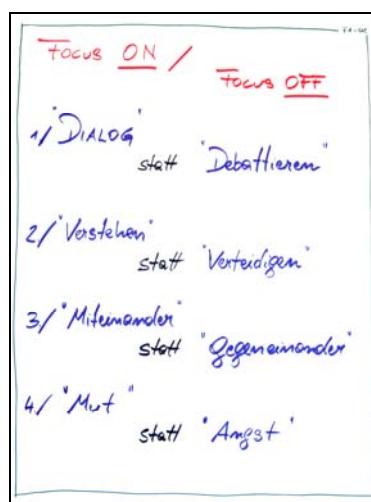 Focus ON /
Focus OFF
1/ "DIALOG"
statt "Debattieren"
2/ "Verstehen"
statt "Verteidigen"
3/ "Miteinander"
statt "gegeneinander"
4/ "Mut"
statt "Angst"